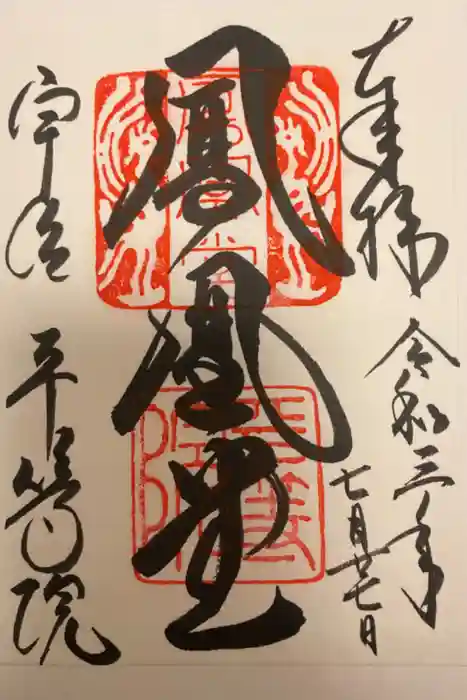 奉拝
令和三年
七月廿七日
鳳凰堂
宇治
平等院
鳳凰堂